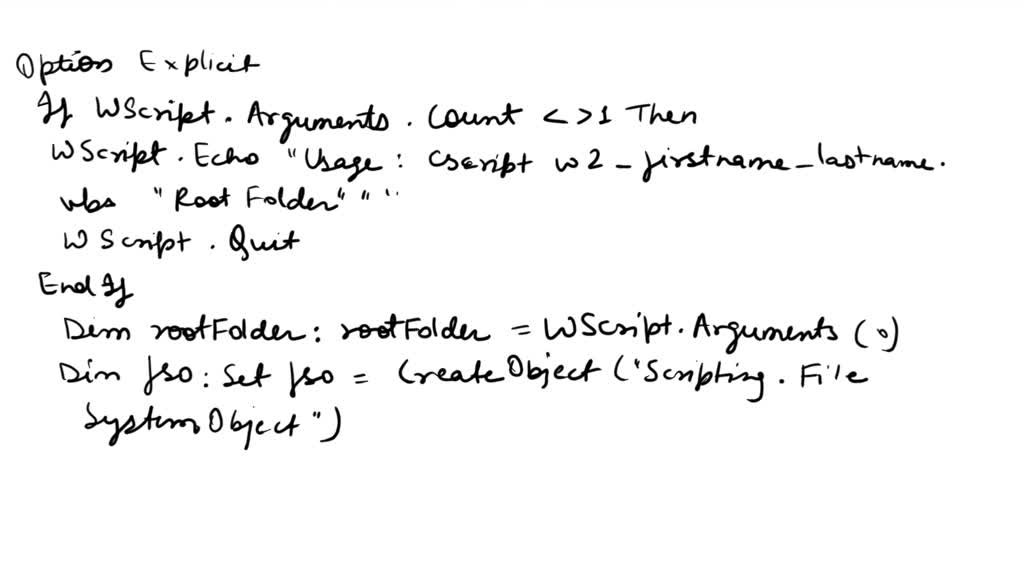 Option Explicit
If WScript.Arguments.Count <>1 Then
WScript.Echo "Usage: Cscript w2_firstname_lastname.
vbs "Root Folder" " "
WScript.Quit
End If
Dim rootFolder: rootFolder = WScript.Arguments (0)
Dim fso: Set fso = CreateObject ("Scripting.File
SystemObject")